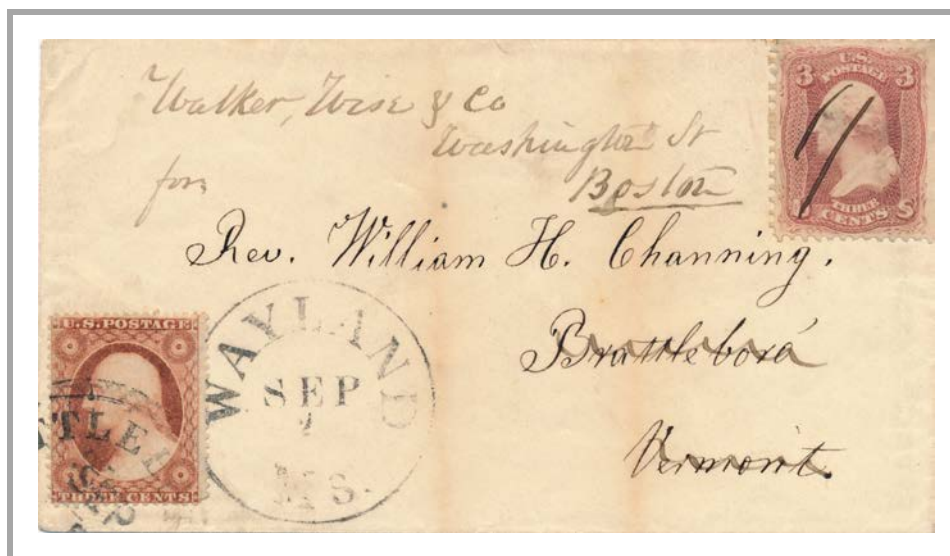 Walker, Wise & Co
Washington St
Boston
for
Rev. William H. Channing.
Brattleboro
Vermont.
U.S.
POSTAGE
3 3
THREE
CENTS
U.S. POSTAGE
THREE CENTS
WAYLAND
SEP
MS.
TTLE
SEP